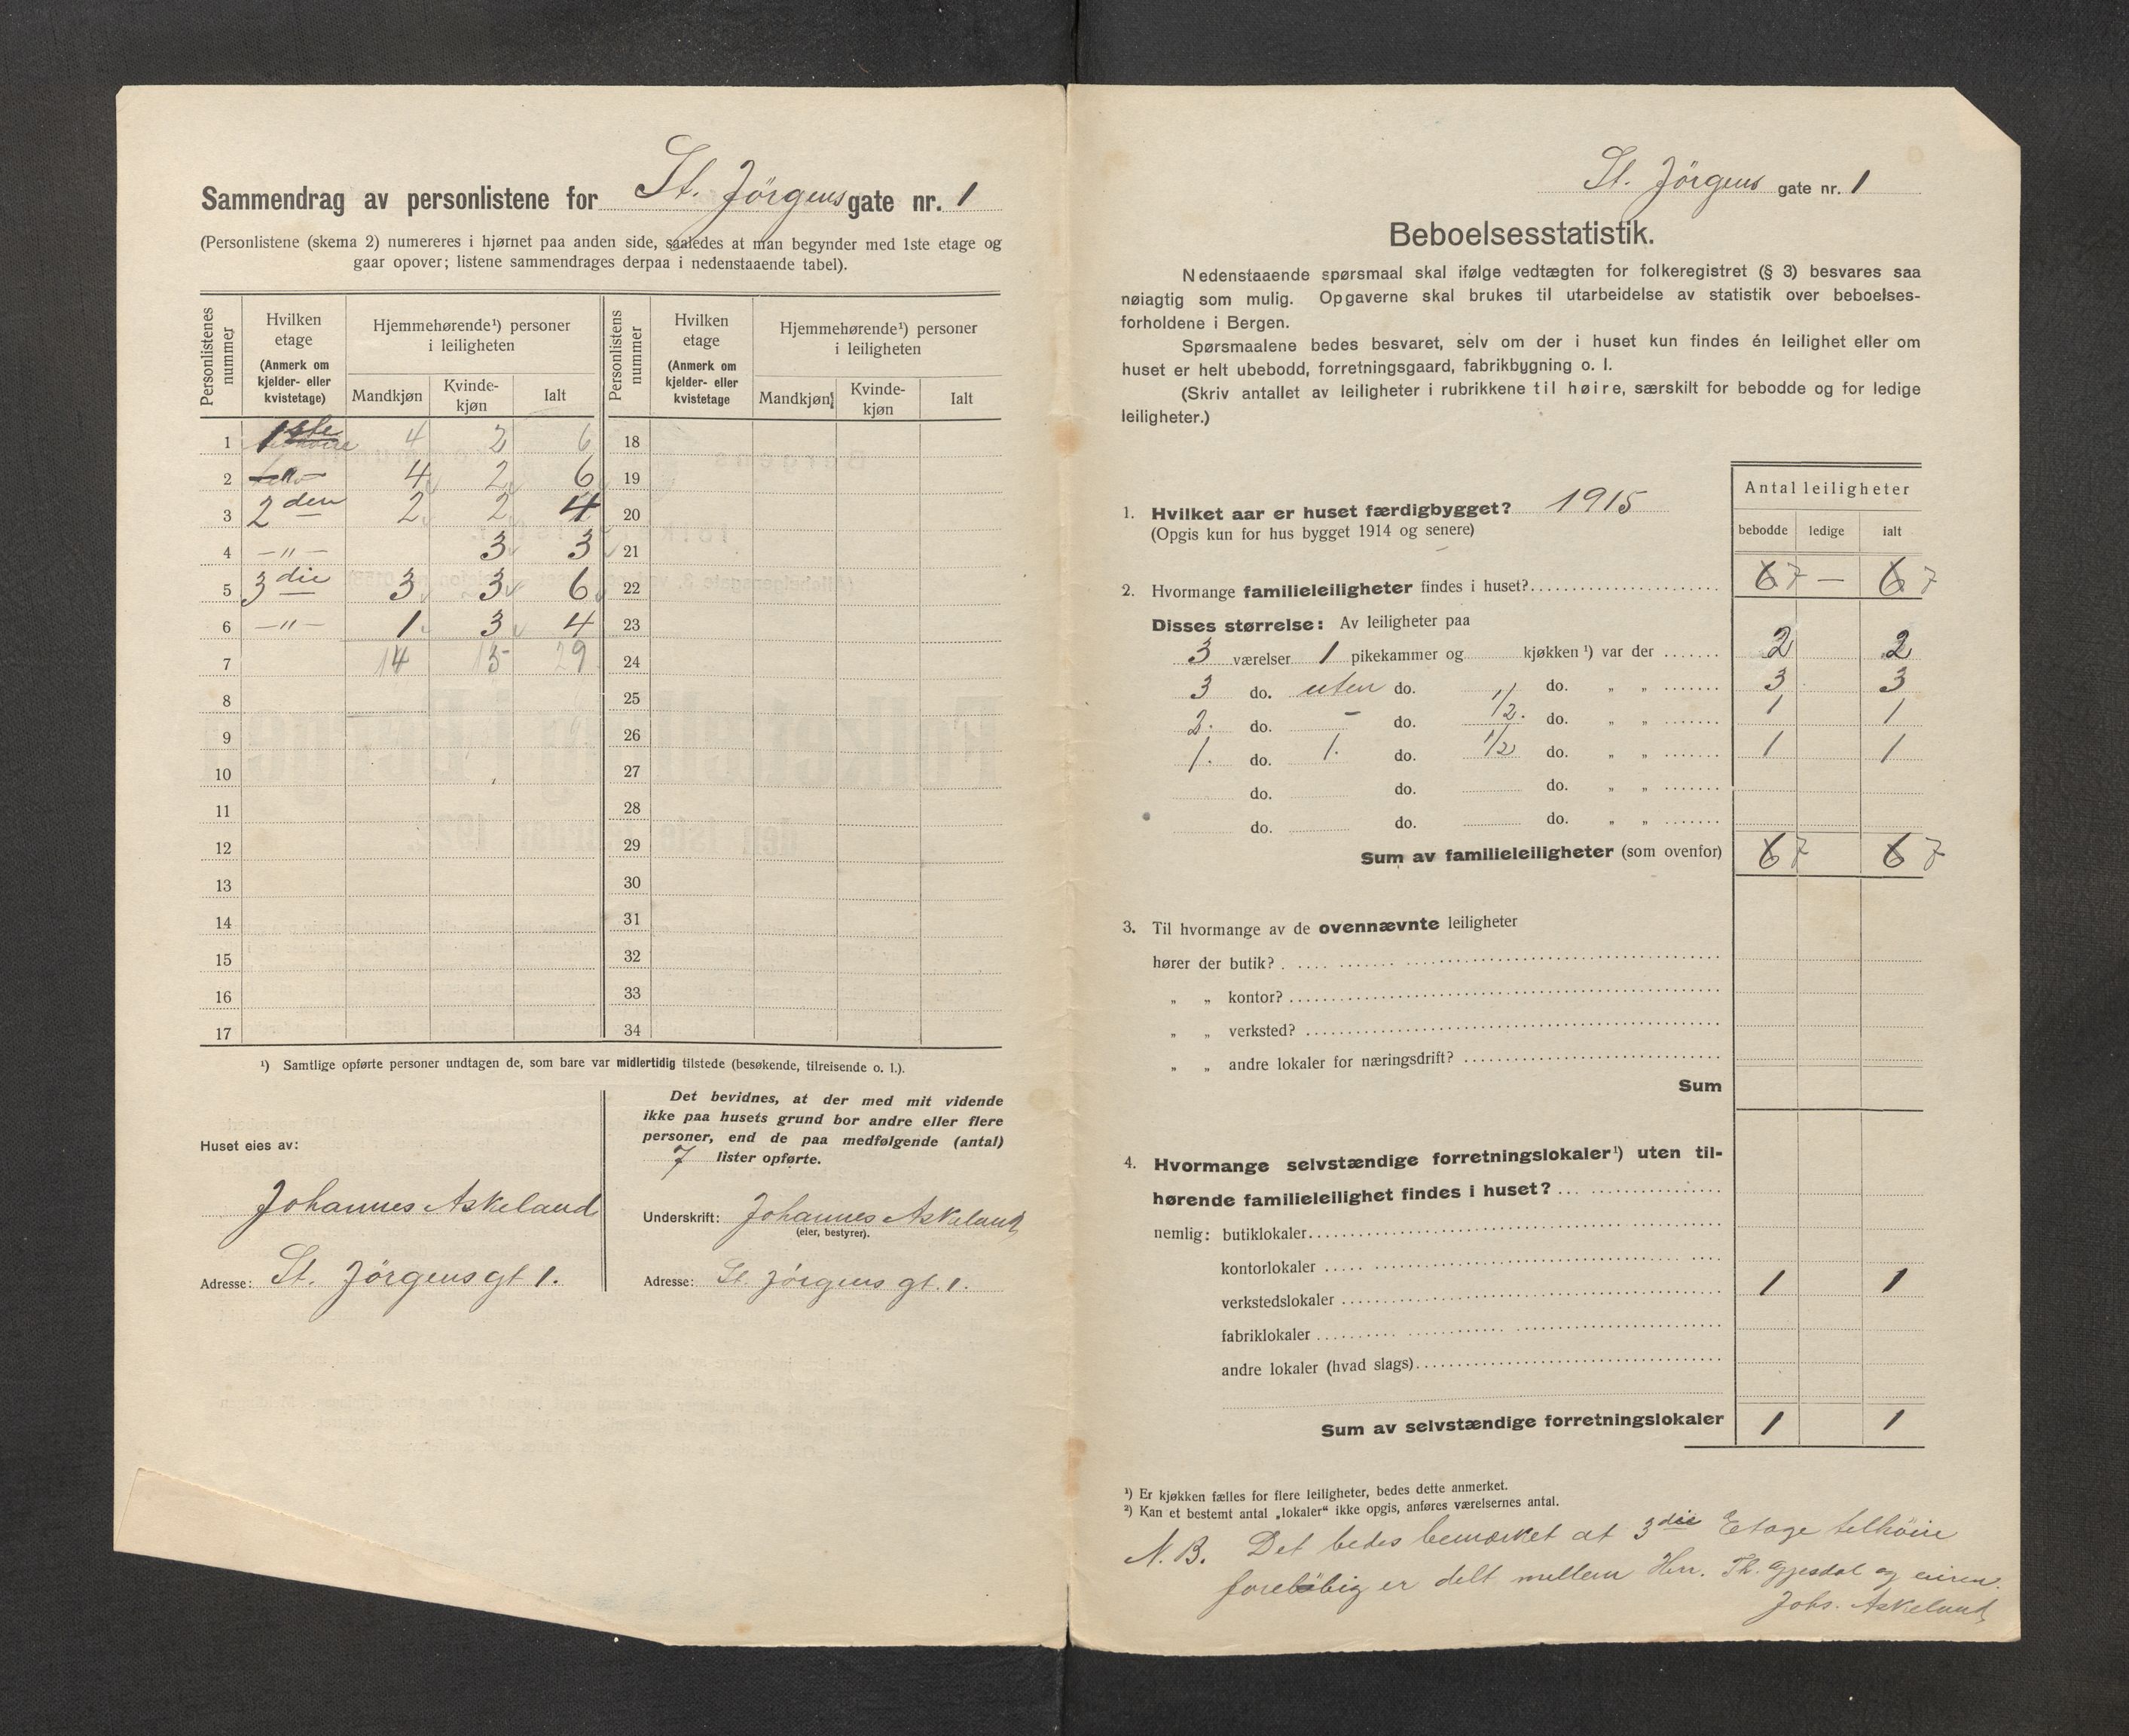 Sammendrag av personlistene for St. Jörgens gate nr. 1
(Personlistene (skema 2) numereres i hjørnet paa anden side, saaledes at man begynder med 1ste etage og
gaar opover; listene sammendrages derpaa i nedenstaaende tabel).
Personlistenes nummer | Hvilken etage (Anmerk om kjelder- eller kvistetage) | Hjemmehørende¹) personer i leiligheten | Mandkjøn | Kvinde-kjøn | Ialt
Personlistens nummer | Hvilken etage (Anmerk om kjelder- eller kvistetage | Hjemmehørende¹) personer i leiligheten | Mandkjøn | Kvinde-kjøn | Ialt
1 1ste 4 2 6 18
2 4 2 6 19
3 2den 2 2 4 20
4 —„— 3 3 21
5 3die 3 3 6 22
6 —„— 1 3 4 23
7 14 15 29 24
8 25
9 26
10 27
11 28
12 29
13 30
14 31
15 32
16 33
17 34
¹) Samtlige opførte personer undtagen de, som bare var midlertidig tilstede (besøkende, tilreisende o. l.).
Huset eies av:
Johannes Askeland
Adresse: St. Jörgens gt 1.
Det bevidnes, at der med mit vidende
ikke paa husets grund bor andre eller flere
personer, end de paa medfølgende (antal)
7 lister opførte.
Underskrift: Johannes Askeland
(eier, bestyrer).
Adresse: St. Jörgens gt. 1.
St. Jörgens gate nr. 1
Beboelsesstatistik.
Nedenstaaende spørsmaal skal ifølge vedtægten for folkeregistret (§ 3) besvares saa
nøiagtig som mulig. Opgaverne skal brukes til utarbeidelse av statistik over beboelses-
forholdene i Bergen.
Spørsmaalene bedes besvaret, selv om der i huset kun findes én leilighet eller om
huset er helt ubebodd, forretningsgaard, fabrikbygning o. l.
(Skriv antallet av leiligheter i rubrikkene til høire, særskilt for bebodde og for ledige
leiligheter.)
Antal leiligheter
bebodde ledige ialt
1. Hvilket aar er huset færdigbygget? 1915
(Opgis kun for hus bygget 1914 og senere)
2. Hvormange familieleiligheter findes i huset? 6 7 — 6 7
Disses størrelse: Av leiligheter paa
3 værelser 1 pikekammer og kjøkken ¹) var der 2 2
3 do. uten do. do. „ „ 3 3
2. do. - do. 1/2. do. „ „ 1 1
1. do. 1. do. 1/2 do. „ „ 1 1
do. do. do. „ „
do. do. do. „ „
Sum av familieleiligheter (som ovenfor) 6 7 6 7
3. Til hvormange av de ovennævnte leiligheter
hører der butik?
„ „ kontor?
„ „ verksted?
„ „ andre lokaler for næringsdrift?
Sum
4. Hvormange selvstændige forretningslokaler¹) uten til-
hørende familieleilighet findes i huset?
nemlig: butiklokaler
kontorlokaler
verkstedslokaler 1 1
fabriklokaler
andre lokaler (hvad slags)
Sum av selvstændige forretningslokaler 1 1
¹) Er kjøkken fælles for flere leiligheter, bedes dette anmerket.
²) Kan et bestemt antal „lokaler“ ikke opgis, anføres værelsernes antal.
N. B. Det bedes bemærket at 3die Etage tilhöire
forelöbig er delt mellem Hrr. Th. Gjesdal og eieren.
Johs. Askeland